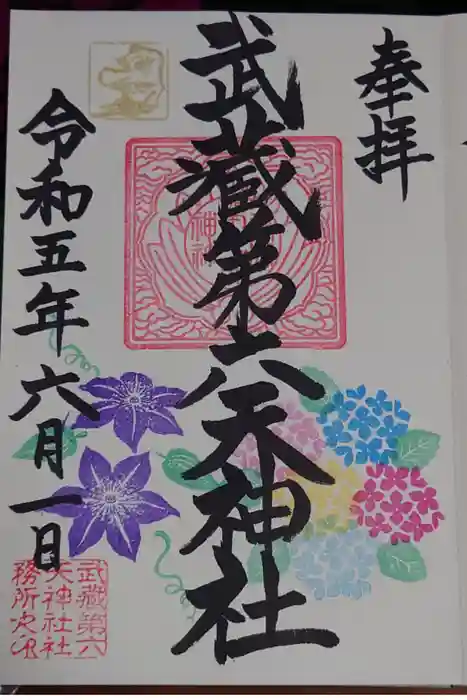 奉拝
武蔵第六天神社
令和五年六月一日
武蔵第六
天神社社
務所之印